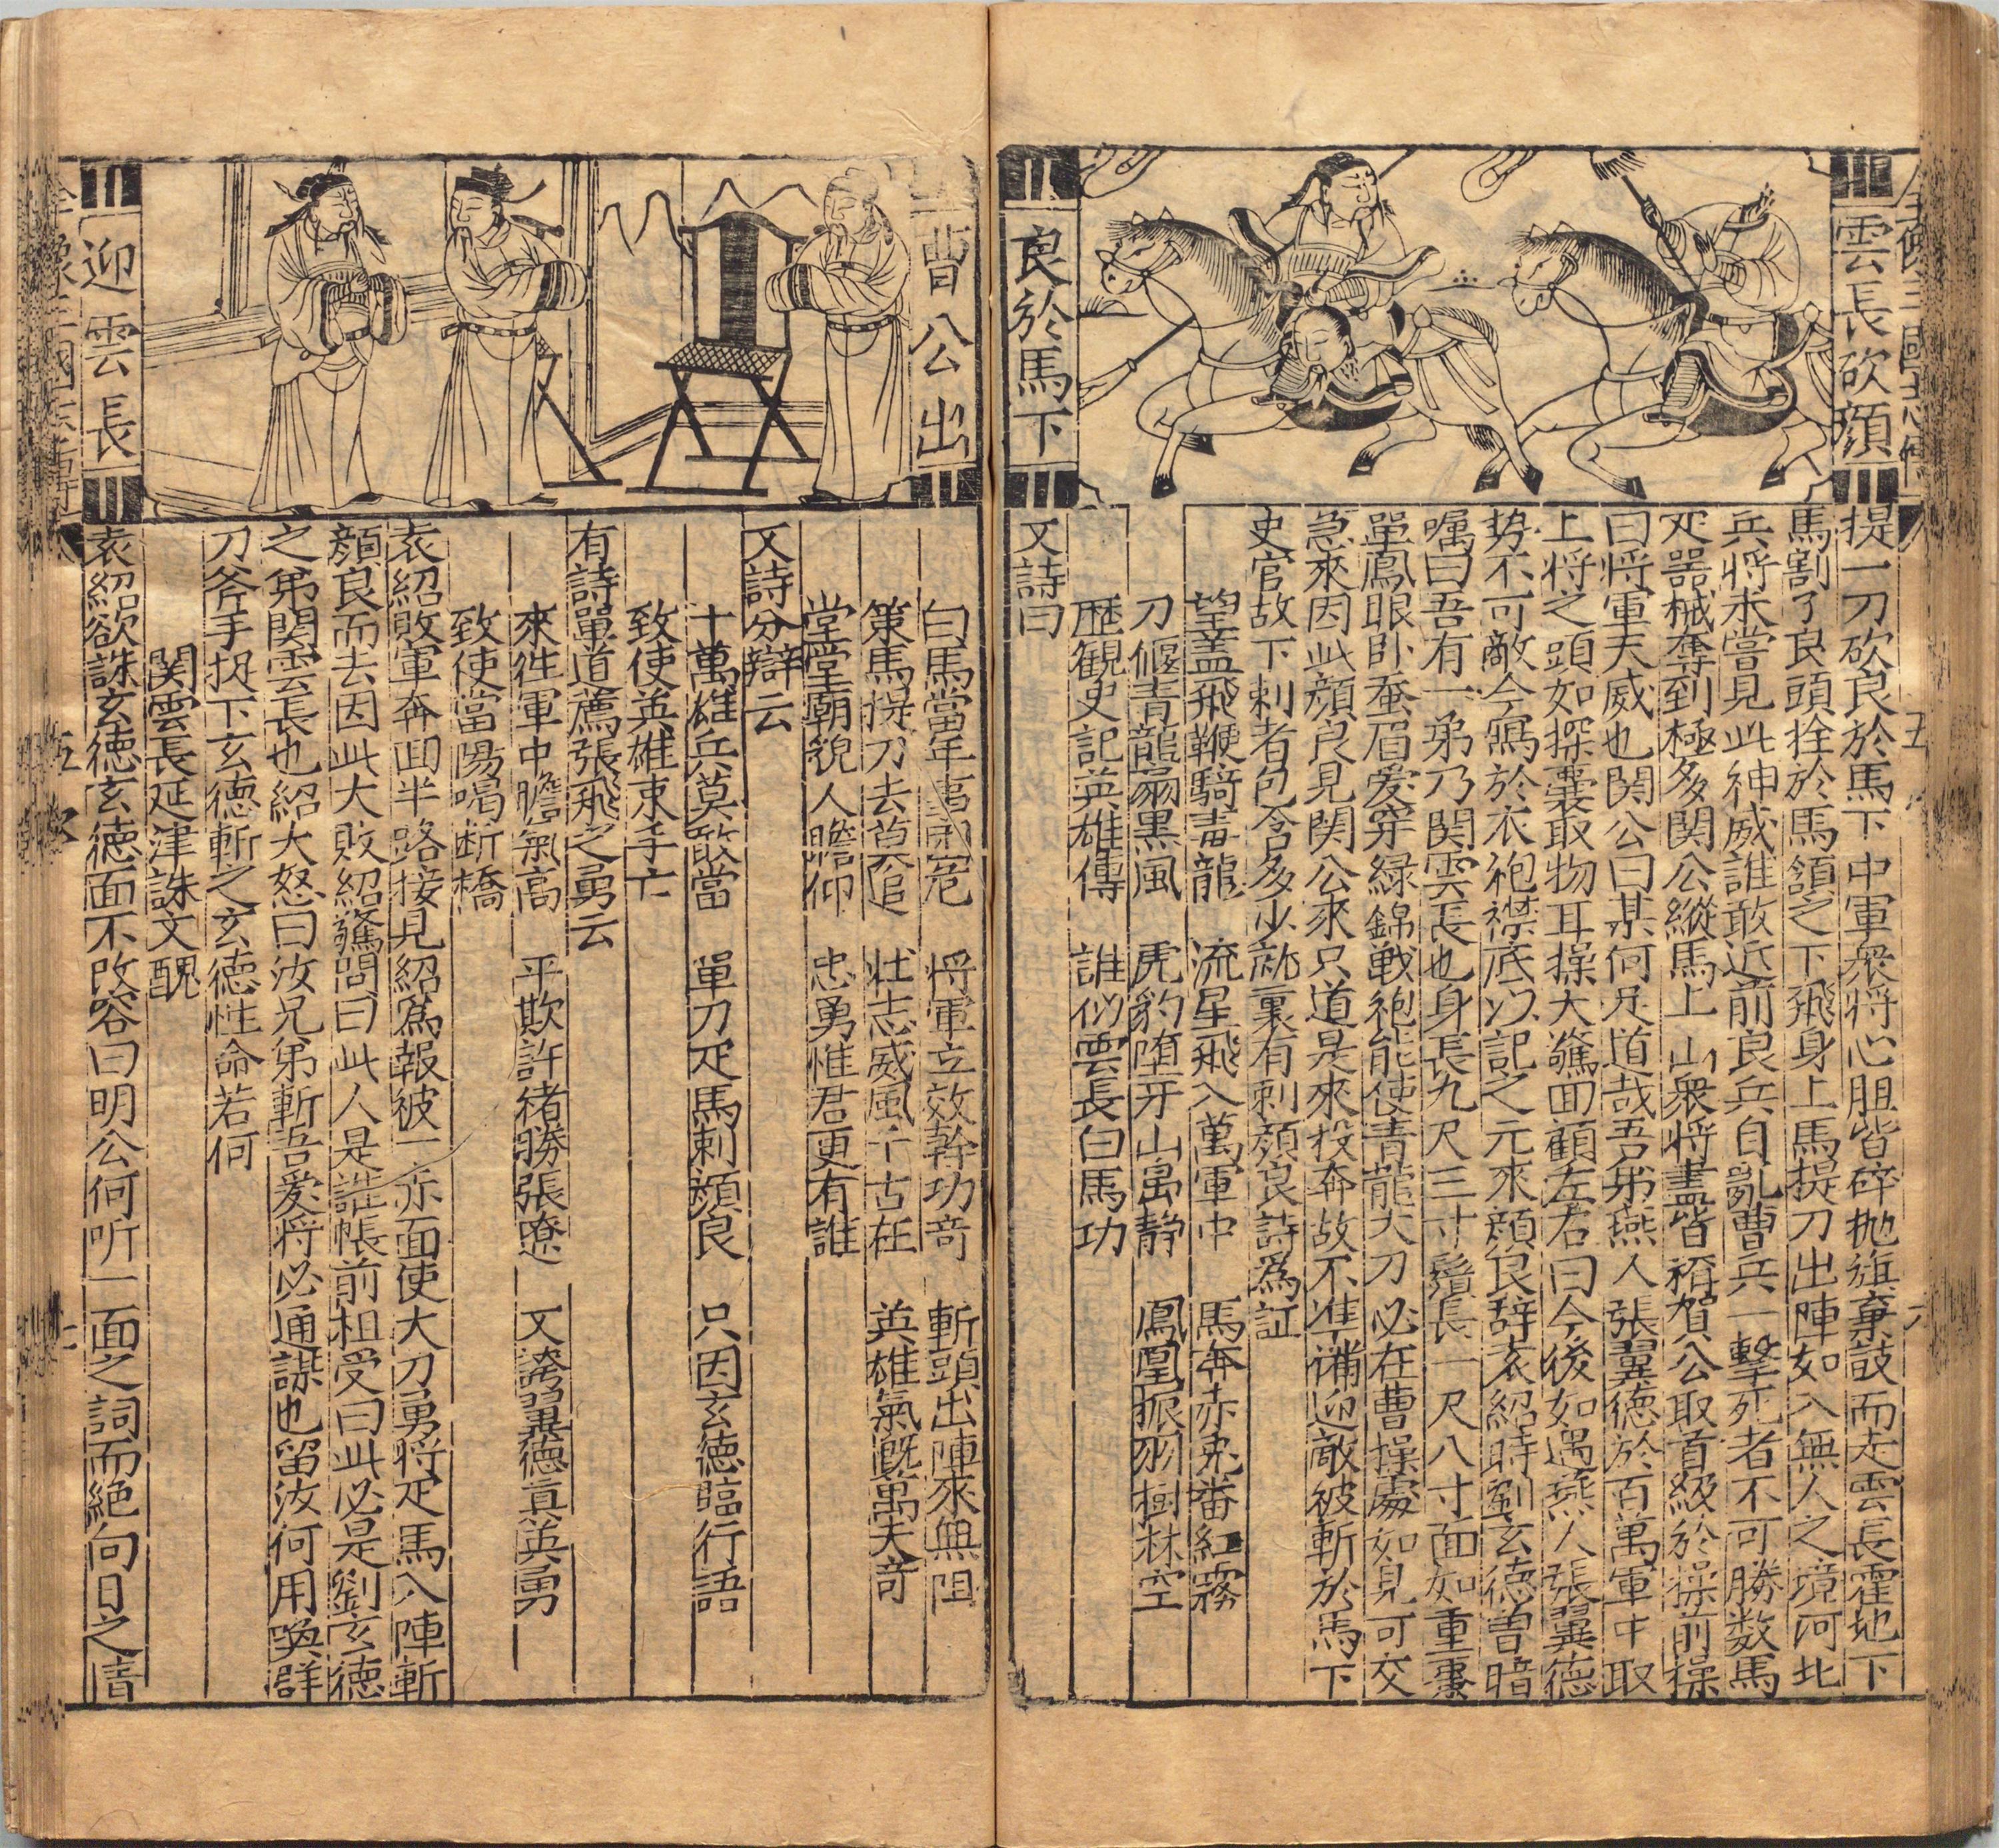 全像三國志傳
五卷
六
雲長砍顔
良於馬下
提一刀砍良於馬下中軍衆將心胆皆碎抛旗棄鼓而走雲長霍地下
馬割了良頭拴於馬頷之下飛身上馬提刀出陣如入無人之境河北
兵將未嘗見此神威誰敢近前良兵自亂曹兵一擊死者不可勝数馬
疋噐械奪到極多関公縱馬上山衆將盡皆稱賀公取首級於操前操
曰将軍天威也関公曰某何足道哉吾弟燕人張翼德於百萬軍中取
上将之頭如探囊取物耳操大驚回顧左右曰今後如遇燕人張翼德
势不可敵今寫於衣袍襟底以記之元來顔良辞袁紹時劉玄德曽暗
嘱曰吾有一弟乃関雲長也身長九尺三寸鬚長一尺八寸面如重棗
單鳳眼卧蚕眉爱穿緑錦戦袍能使青龍大刀必在曹操處如見可交
急來因此顔良見関公來只道是來投奔故不准備迎敵被斬於馬下
史官故下刺者包含多少就裏有刺顔良詩為証
望蓋飛鞭騎毒龍　流星飛入萬軍中　馬奔赤兎番紅霧
刀偃青龍扇黒風　虎豹墮牙山嵓静　鳳凰振羽樹林空
歴観史記英雄傳　誰似雲長白馬功
又詩曰
曹公出
迎雲長
白馬當年事困危　将軍立效幹功竒　斬頭出陣來無阻
策馬提刀去莫追　壮志威風千古在　英雄氣慨萬夫竒
堂堂廟貌人瞻仰　忠勇惟君更有誰
又詩分辯云
十萬雄兵莫敢當　單刀疋馬刺顔良　只因玄德臨行語
致使英雄束手亡
有詩單道薦張飛之勇云
來徃軍中膽氣高　平欺許禇勝張遼　又誇翼德真英勇
致使當陽喝断橋
袁紹敗軍奔回半路接見紹爲報被一赤面使大刀勇将疋馬入陣斬
顔良而去因此大敗紹驚問曰此人是誰帳前祖受曰此必是劉玄德
之弟関雲長也紹大怒曰汝兄弟斬吾爱将必通謀也留汝何用喚群
刀斧手捉下玄德斬之玄德性命若何
関雲長延津誅文醜
袁紹欲誅玄德玄德面不改容曰明公何听一面之詞而絶向日之情
全像三國志傳
五卷